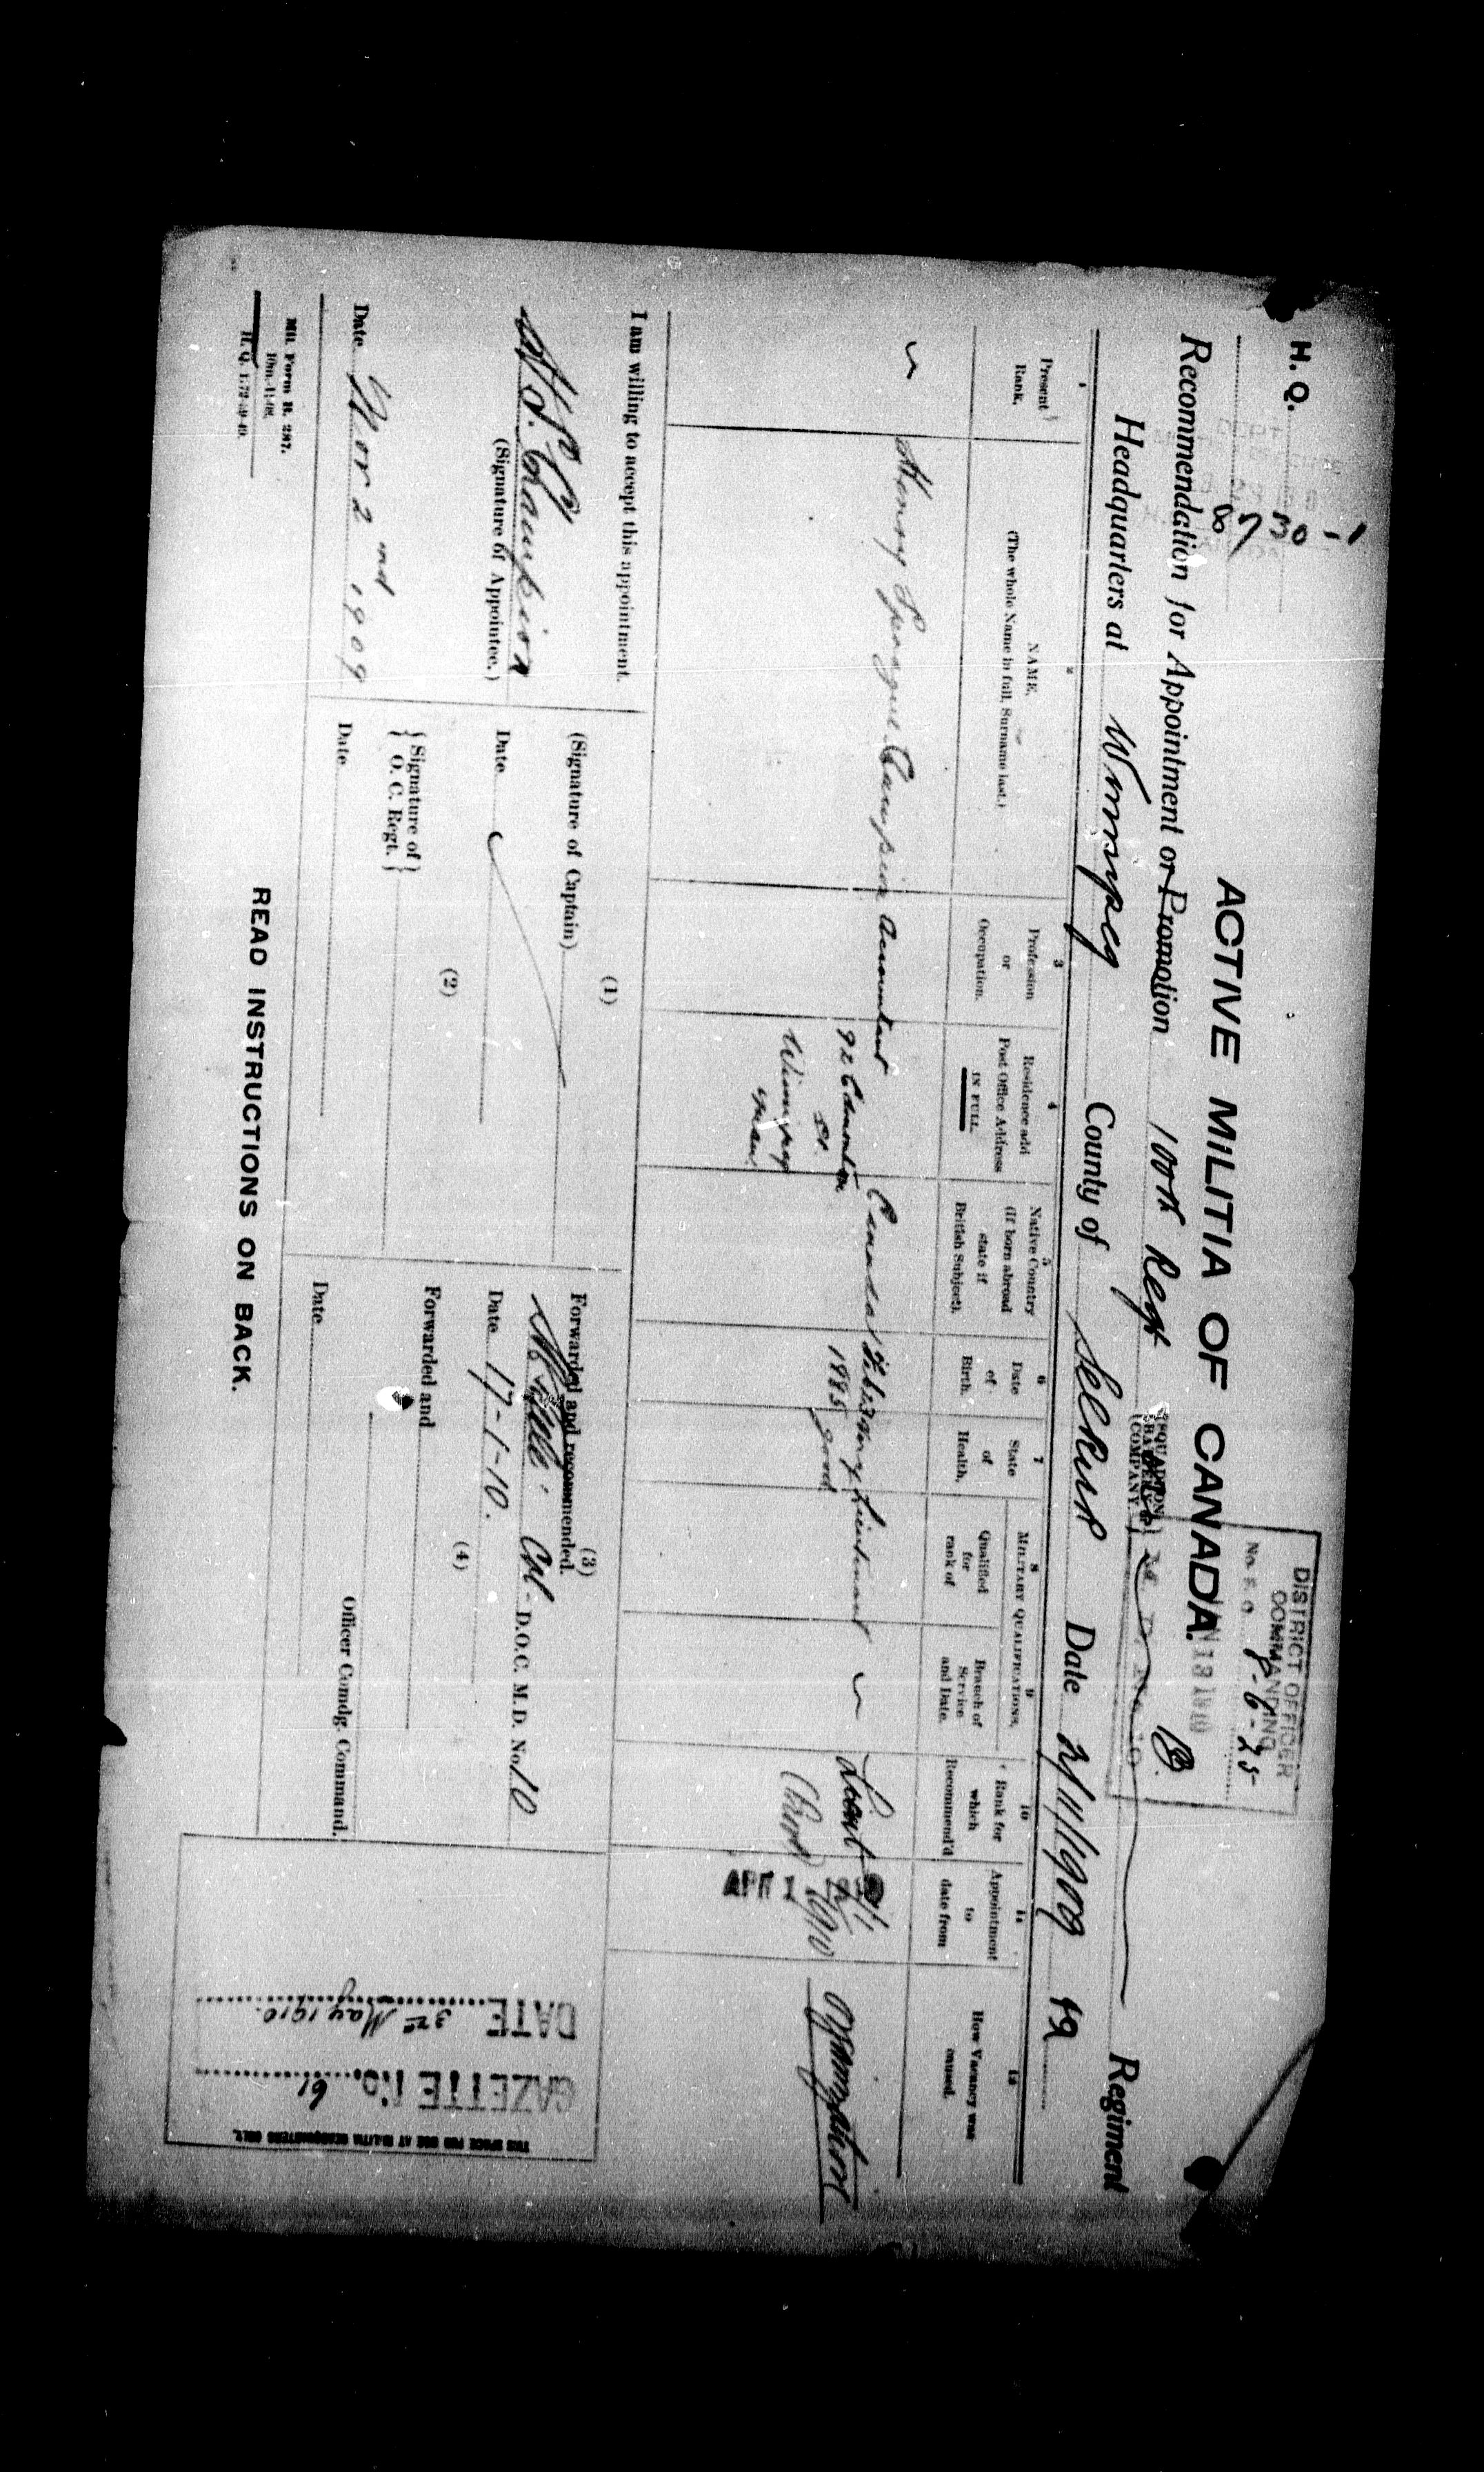 H. Q.
8730-1
DISTRICT OFFICER
COMMANDING
No. 8-6-25
ACTIVE MILITIA OF CANADA.
Recommendation for Appointment or Promotion 100th Regt {SQUADRON BATTERY COMPANY.} B. Regiment
Headquarters at Winnipeg County of Selkirk Date 2/11/1909 19
1
Present Rank.
2
NAME.
(The whole Name in full, Surname last.)
3
Profession or Occupation.
4
Residence add Post Office Address IN FULL.
5
Native Country (If born abroad state if British Subject).
6
Date of Birth.
7
State of Health.
MILITARY QUALIFICATIONS.
8
Qualified for rank of
9
Branch of Service and Date.
10
Rank for which Recommend'd
11
Appointment to date from
12
How Vacancy was caused.
Henry Sprague Champion
Accountant
92 Edmonton St. Winnipeg Man
Canada
February 1885
good
Lieutenant
Lieut (Prov)
1910
APR 1
Organization
I am willing to accept this appointment.
H. S. Champion
(Signature of Appointee.)
Date Nov 2nd 1909
(1)
(Signature of Captain)
Date
(2)
{Signature of O. C. Regt.}
Date
(3)
Forwarded and recommended.
Col. D.O.C. M.D. No 10
Date 17-1-10.
(4)
Forwarded and
Officer Comdg. Command.
Date
THIS SPACE FOR USE AT MILITIA HEADQUARTERS ONLY.
GAZETTE No. 61
DATE 3rd May 1910.
Mil. Form B. 287.
10m.-11-08.
H. Q. 1772-39-49.
READ INSTRUCTIONS ON BACK.